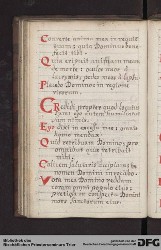 Convertere anima mea in requiē
tuam: quia Dominus bene
fecit tibi.
Quia eripuit animam meam
de morte: oculos meos a
lacrymis: pedes meos a lapsu.
Placebo Domino in
regione vivorum.
Credidi, propter quod locutus
sum: ego autem humiliatus
sum nimis.
Ego dixi in excessu meo: omnis
homo mendax.
Quid retribuam Domino: pro
omnibus quae retribuit
mihi?
Calicem salutaris accipiam: et
nomen Domini invocabo.
Vota mea Domino reddam
coram omni populo eius:
pretiosa in conspectu Domini
mors sanctorum eius.
Bibliothek des
Bischöflichen Priesterseminars Trier